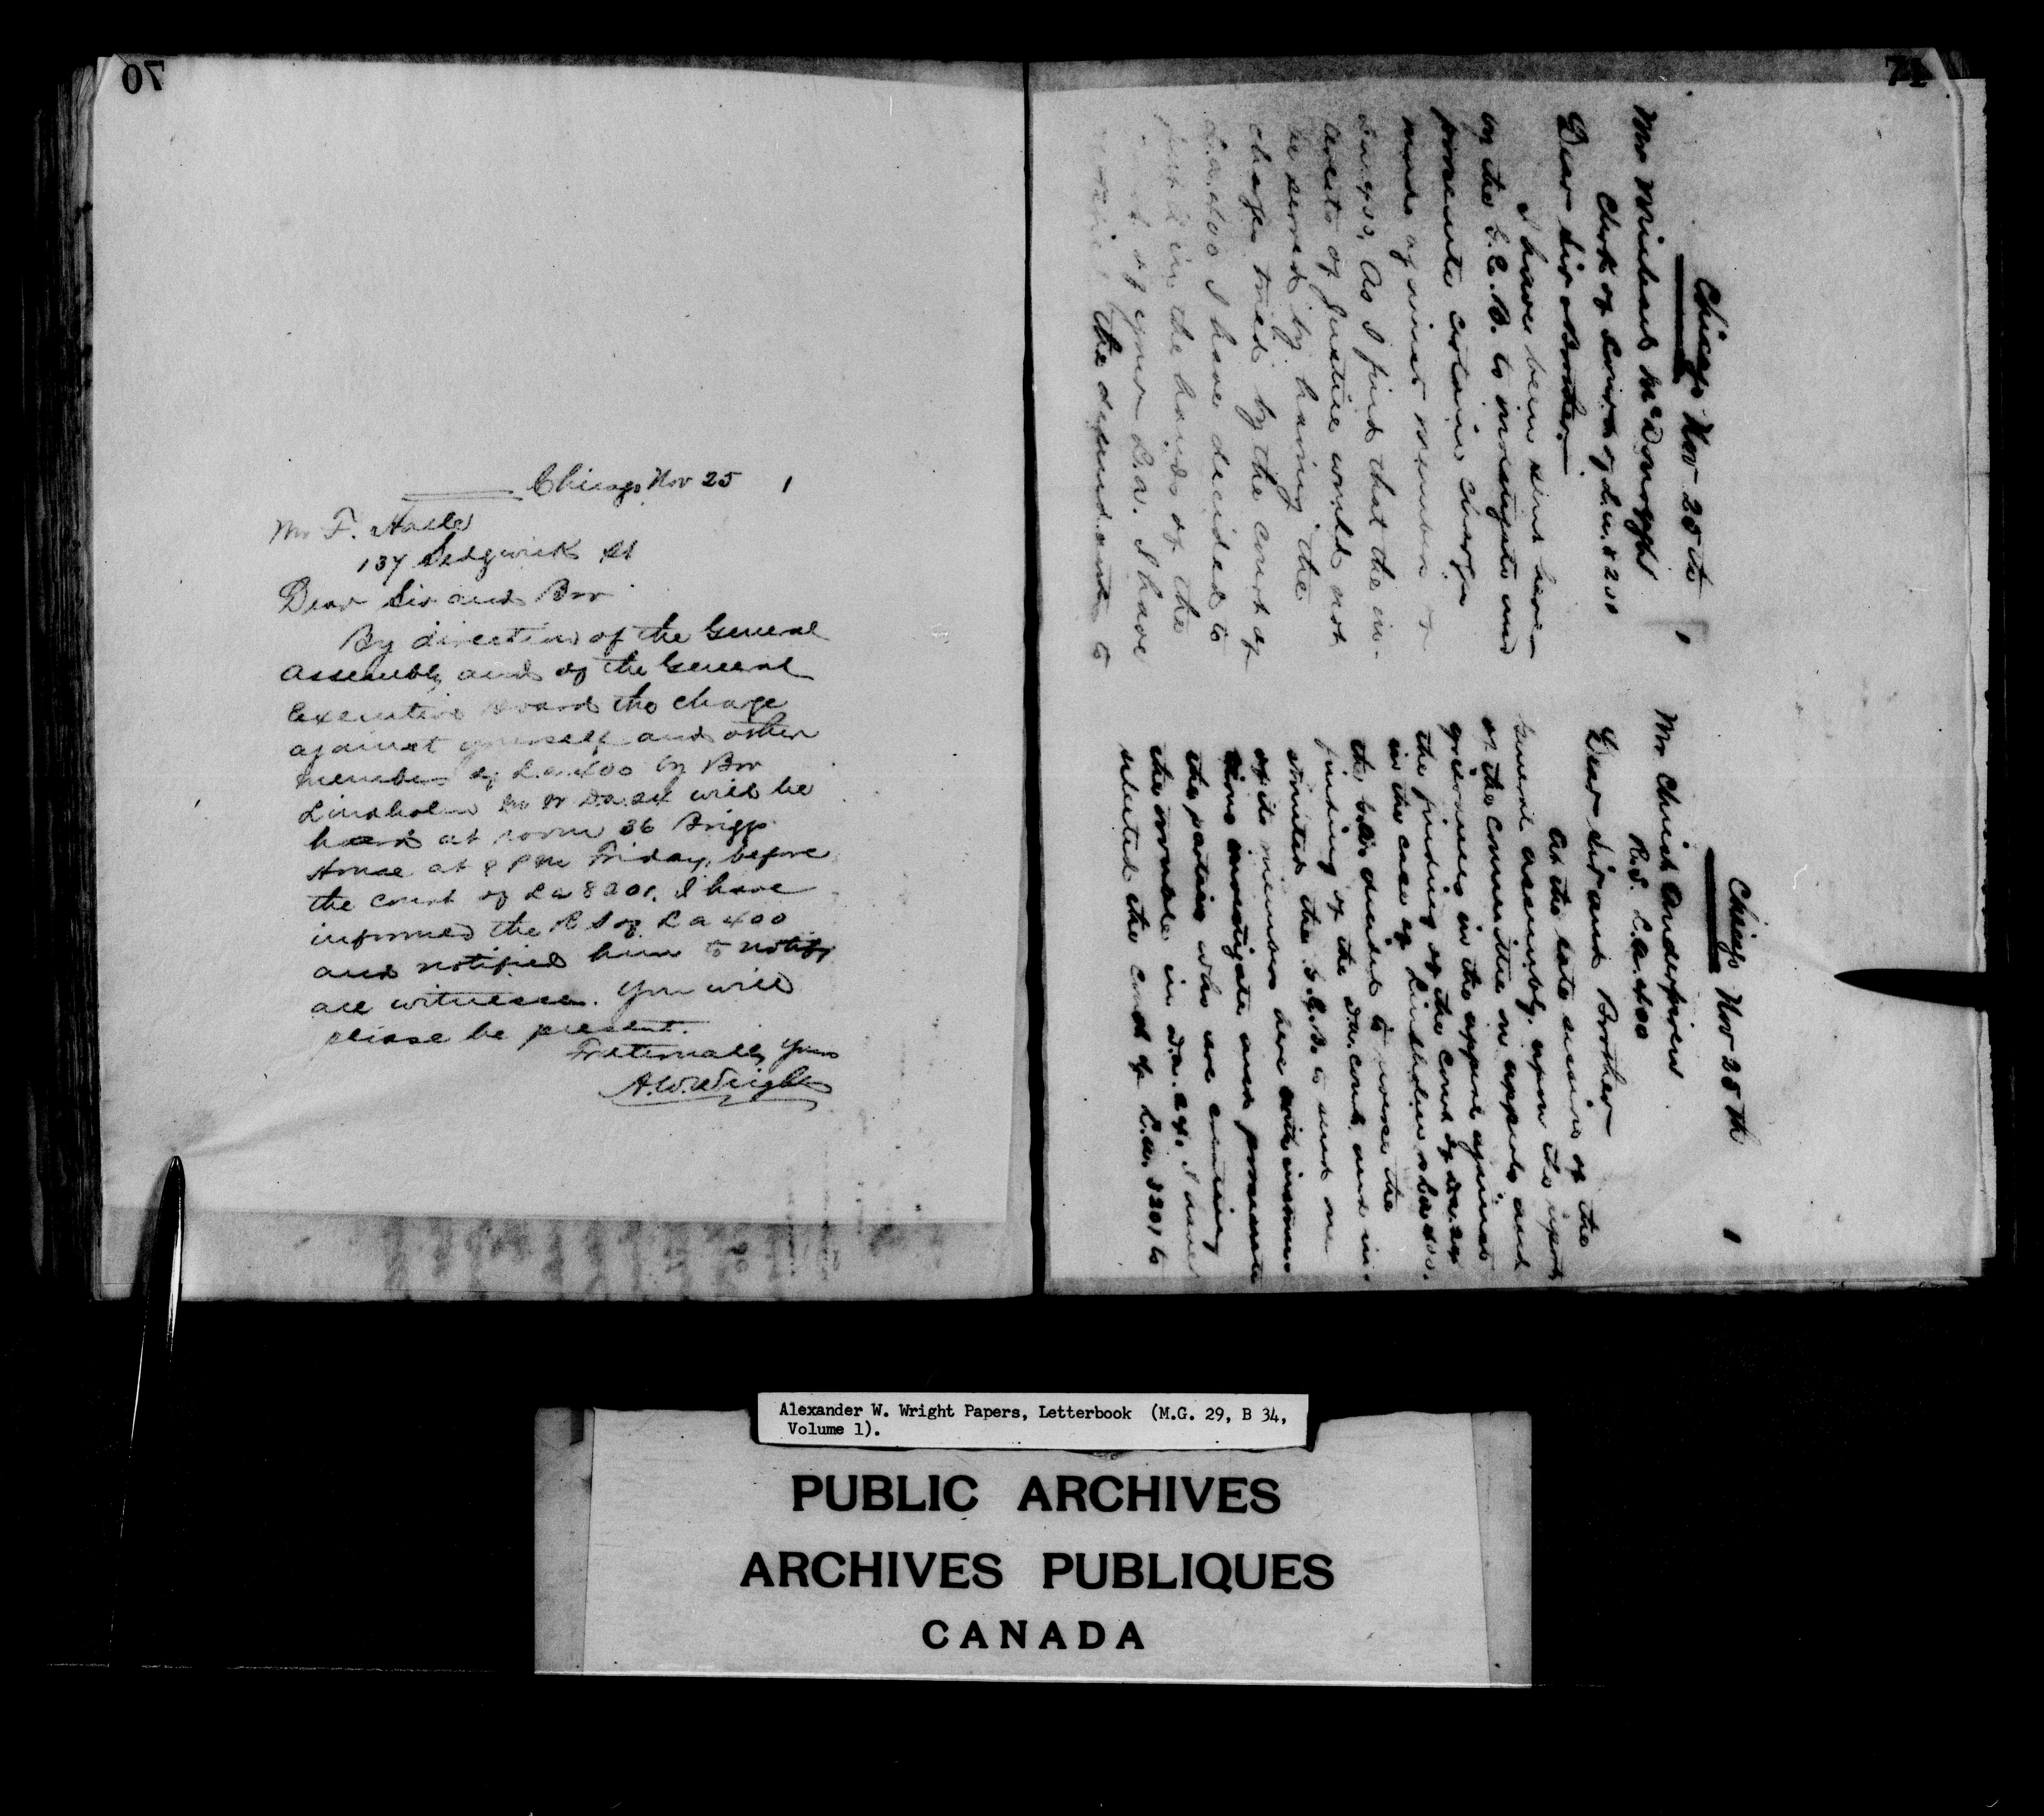 70
Chicago Nov 25 1
Mr F.
137 Sedgwick St
Dear Sir and Bro
By direction of the General
Assembly and of the General
Executive Board the charge
against yourself and other
members of L.a 400 by Bro
Lindholm will be
heard at room 36 Briggs
House at 8 P M Friday, before
the court of L a 8201. I have
informed the R S of L a 400
and notified him to notify
all witnesses. You will
please be present.
Fraternally Yours
A.W.Wright
71
Chicago Nov 25 th 1
Mr Michael McDonough
Clerk of Court of L.a. 8201
Dear Sir & Brother
I have been sent here
by the G.E.B. to investigate and
prosecute certain charges
made against members of
L.a. 400. As I find that the in-
terests of Justice would not
be served by having the
charges tried by the court of
L.a. 400 I have decided to
in the hands of the
court of your L.a. I have
the defendants to
Chicago Nov 25 th 1
Mr Christ
R.S. L.a. 400
Dear Sir and Brother
At the late session of the
General Assembly, upon the report
of the committee on appeals and
grievances in the appeal against
the finding of the court of
in the case of Lindholm
the G.A. decided to reverse the
finding of the D.a. court and in-
structed the G.E.B. to send one
of its members here with instruc
tions investigate and prosecute
the parties who are causing
the trouble in D.a. I have
selected the court of L.a. 8201 to
Alexander W. Wright Papers, Letterbook (M.G. 29, B 34,
Volume 1).
PUBLIC ARCHIVES
ARCHIVES PUBLIQUES
CANADA